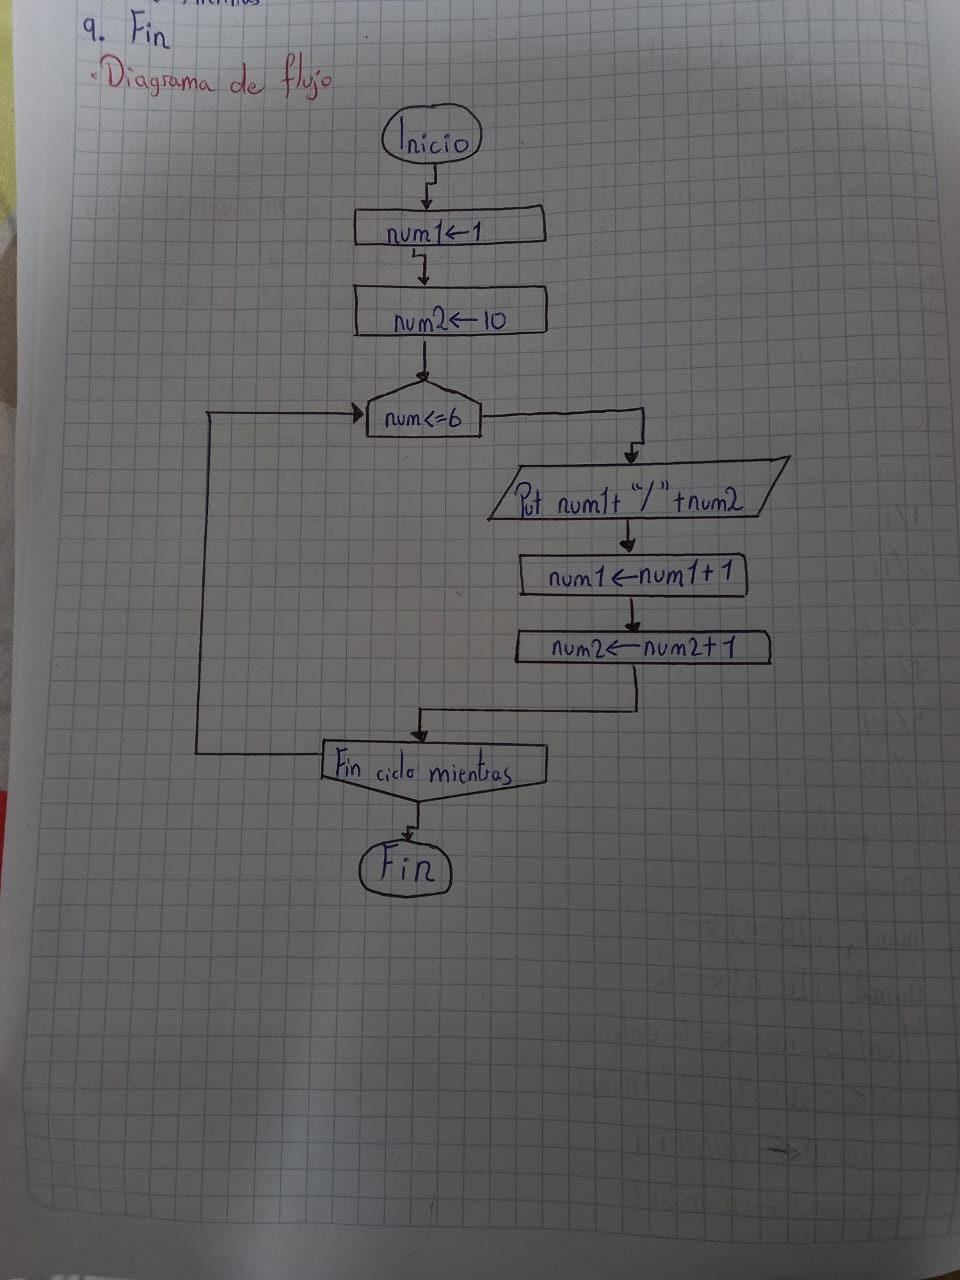 9. Fin
• Diagrama de flujo
Inicio
num1←1
num2←10
num<=6
Put num1+ "/" +num2
num1←num1+1
num2←num2+1
Fin ciclo mientras
Fin